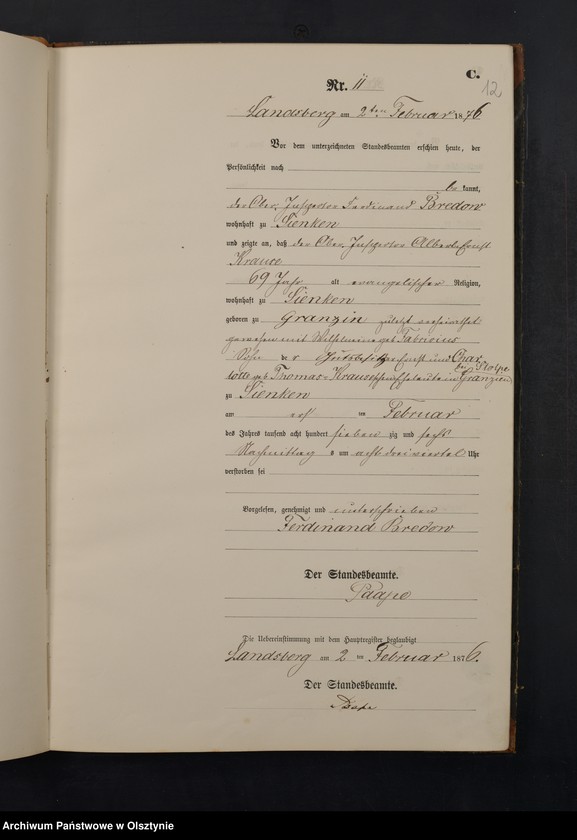 C.
12
Nr. 11
Landsberg am 2ten Februar 1876.
Vor dem unterzeichneten Standesbeamten erschien heute, der
Persönlichkeit nach
be kannt,
der Ober Inspector Ferdinand Bredow
wohnhaft zu Sienken
und zeigte an, daß der Ober Inspector Albert Ernst
Krause
69 Jahr alt evangelischer Religion,
wohnhaft zu Sienken
geboren zu Granzin zuletzt verheirathet
gewesen mit Wilhelmine geb. Fabricius
Sohn der Gutsbesitzer Ernst und Char
bei Stolpe
lotte geb. Thomas Krauseschen Eheleute in Granzin
zu Sienken
am im Februar
des Jahres tausend acht hundert sieben zig und sechs
Nachmittag s um acht dreiviertel Uhr
verstorben sei
Vorgelesen, genehmigt und unterschrieben
Ferdinand Bredow
Der Standesbeamte.
Paape
Die Uebereinstimmung mit dem Hauptregister beglaubigt
Landsberg am 2 ten Februar 1876.
Der Standesbeamte.
Paape
Archiwum Państwowe w Olsztynie